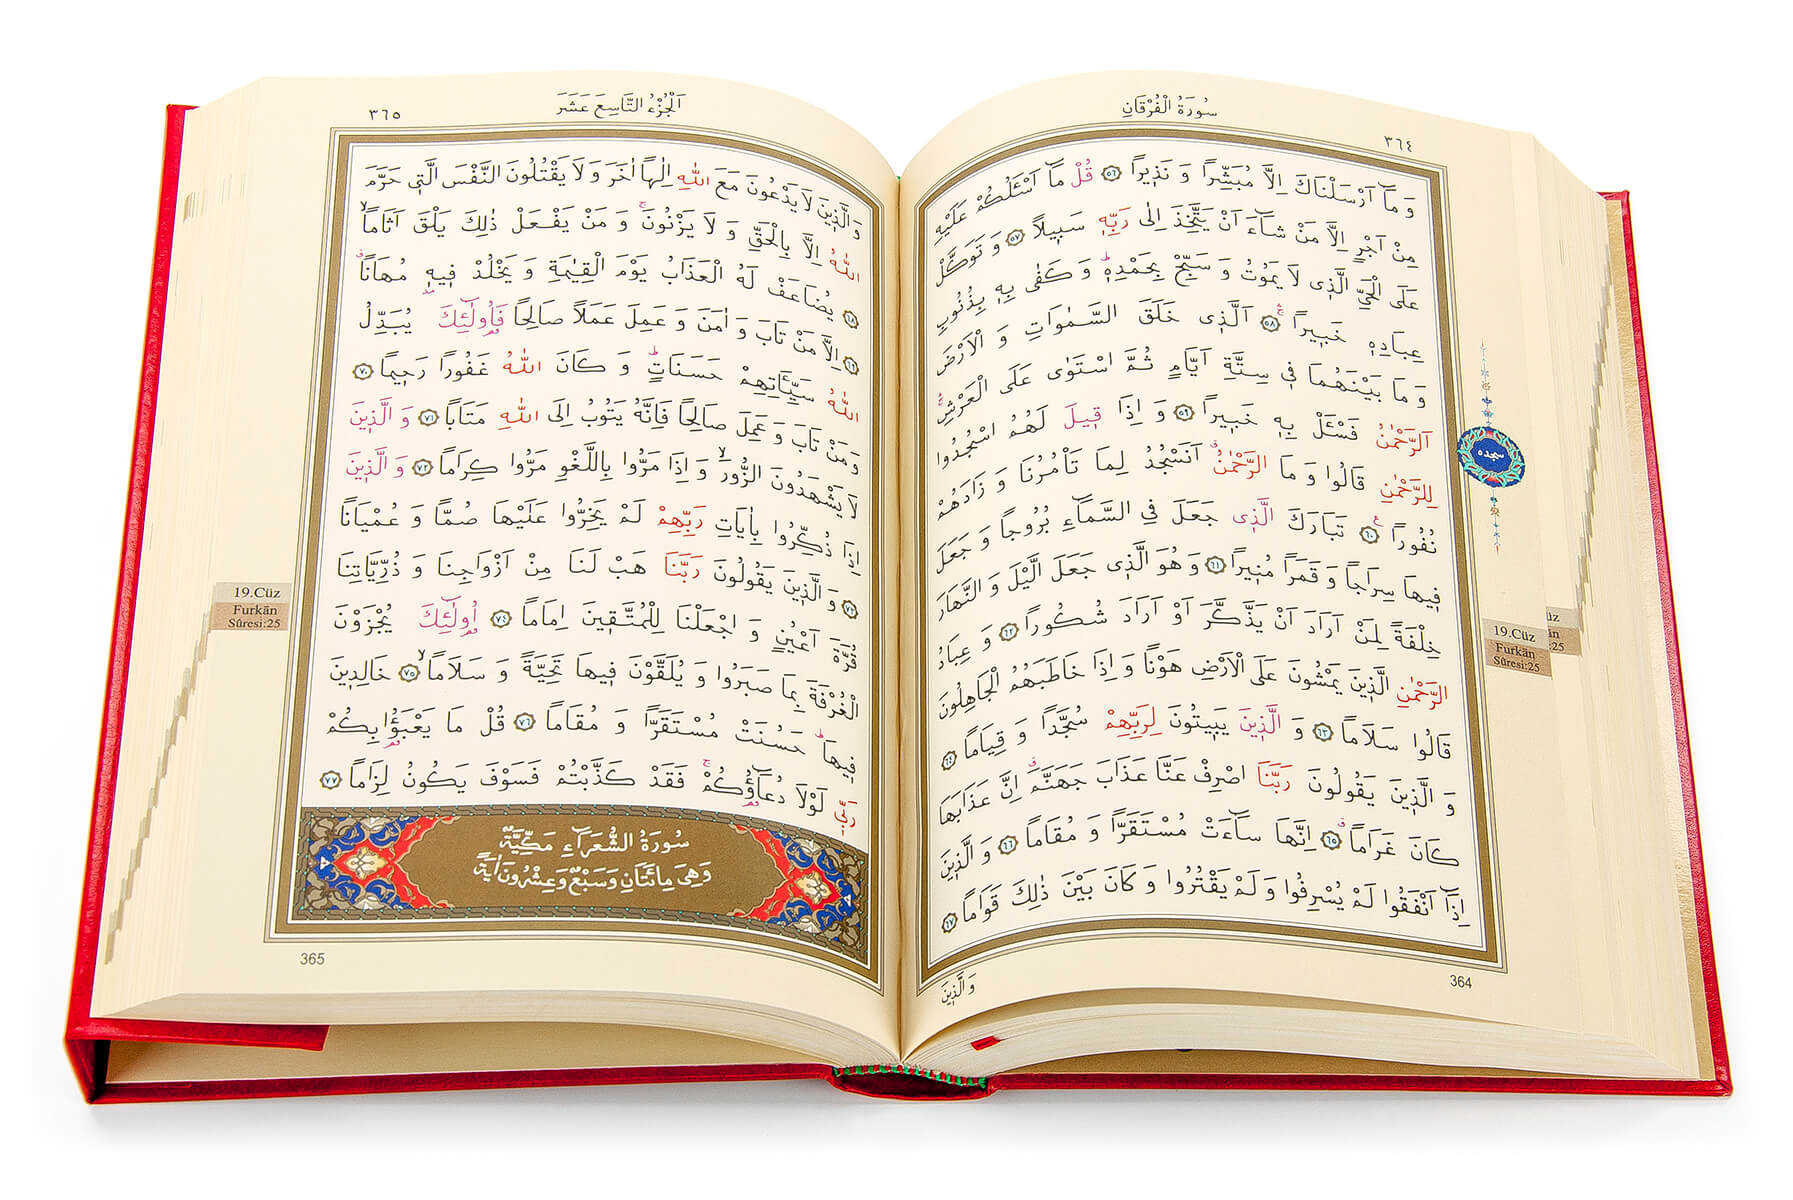 سُورَةُ الْفُرْقَانِ
٣٦٤
وَمَٓا اَرْسَلْنَاكَ اِلَّا مُبَشِّرًا وَنَذ۪يرًا ﴿٥٦﴾ قُلْ مَٓا اَسْـَٔلُكُمْ عَلَيْهِ
مِنْ اَجْرٍ اِلَّا مَنْ شَٓاءَ اَنْ يَتَّخِذَ اِلٰى رَبِّه۪ سَب۪يلًا ﴿٥٧﴾ وَتَوَكَّلْ
عَلَى الْحَيِّ الَّذ۪ي لَا يَمُوتُ وَسَبِّحْ بِحَمْدِه۪ۜ وَكَفٰى بِه۪ بِذُنُوبِ
عِبَادِه۪ خَب۪يرًاۚ ﴿٥٨﴾ اَلَّذ۪ي خَلَقَ السَّمٰوَاتِ وَالْاَرْضَ
وَمَا بَيْنَهُمَا ف۪ي سِتَّةِ اَيَّامٍ ثُمَّ اسْتَوٰى عَلَى الْعَرْشِۚ
اَلرَّحْمٰنُ فَسْـَٔلْ بِه۪ خَب۪يرًا ﴿٥٩﴾ وَاِذَا ق۪يلَ لَهُمُ اسْجُدُوا
لِلرَّحْمٰنِ قَالُوا وَمَا الرَّحْمٰنُۗ اَنَسْجُدُ لِمَا تَأْمُرُنَا وَزَادَهُمْ
نُفُورًا ﴿٦٠﴾ تَبَارَكَ الَّذ۪ي جَعَلَ فِي السَّمَٓاءِ بُرُوجًا وَجَعَلَ
ف۪يهَا سِرَاجًا وَقَمَرًا مُن۪يرًا ﴿٦١﴾ وَهُوَ الَّذ۪ي جَعَلَ الَّيْلَ وَالنَّهَارَ
خِلْفَةً لِمَنْ اَرَادَ اَنْ يَذَّكَّرَ اَوْ اَرَادَ شُكُورًا ﴿٦٢﴾ وَعِبَادُ
الرَّحْمٰنِ الَّذ۪ينَ يَمْشُونَ عَلَى الْاَرْضِ هَوْنًا وَاِذَا خَاطَبَهُمُ الْجَاهِلُونَ
قَالُوا سَلَامًا ﴿٦٣﴾ وَالَّذ۪ينَ يَب۪يتُونَ لِرَبِّهِمْ سُجَّدًا وَقِيَامًا ﴿٦٤﴾
وَالَّذ۪ينَ يَقُولُونَ رَبَّنَا اصْرِفْ عَنَّا عَذَابَ جَهَنَّمَۗ اِنَّ عَذَابَهَا
كَانَ غَرَامًاۗ ﴿٦٥﴾ اِنَّهَا سَٓاءَتْ مُسْتَقَرًّا وَمُقَامًا ﴿٦٦﴾ وَالَّذ۪ينَ
اِذَٓا اَنْفَقُوا لَمْ يُسْرِفُوا وَلَمْ يَقْتُرُوا وَكَانَ بَيْنَ ذٰلِكَ قَوَامًا ﴿٦٧﴾
وَالَّذ۪ينَ
364
سجده
19.Cüz
Furkān
Sûresi:25
اَلْجُزْءُ التَّاسِعَ عَشَرَ
٣٦٥
وَالَّذ۪ينَ لَا يَدْعُونَ مَعَ اللّٰهِ اِلٰهًا اٰخَرَ وَلَا يَقْتُلُونَ النَّفْسَ الَّت۪ي حَرَّمَ
اللّٰهُ اِلَّا بِالْحَقِّ وَلَا يَزْنُونَۚ وَمَنْ يَفْعَلْ ذٰلِكَ يَلْقَ اَثَامًاۙ
﴿٦٨﴾ يُضَاعَفْ لَهُ الْعَذَابُ يَوْمَ الْقِيٰمَةِ وَيَخْلُدْ ف۪يه۪ مُهَانًاۗ
﴿٦٩﴾ اِلَّا مَنْ تَابَ وَاٰمَنَ وَعَمِلَ عَمَلًا صَالِحًا فَاُو۬لٰٓئِكَ يُبَدِّلُ
اللّٰهُ سَيِّـَٔاتِهِمْ حَسَنَاتٍۜ وَكَانَ اللّٰهُ غَفُورًا رَح۪يمًا ﴿٧٠﴾
وَمَنْ تَابَ وَعَمِلَ صَالِحًا فَاِنَّهُ يَتُوبُ اِلَى اللّٰهِ مَتَابًا ﴿٧١﴾ وَالَّذ۪ينَ
لَا يَشْهَدُونَ الزُّورَۙ وَاِذَا مَرُّوا بِاللَّغْوِ مَرُّوا كِرَامًا ﴿٧٢﴾ وَالَّذ۪ينَ
اِذَا ذُكِّرُوا بِاٰيَاتِ رَبِّهِمْ لَمْ يَخِرُّوا عَلَيْهَا صُمًّا وَعُمْيَانًا
﴿٧٣﴾ وَالَّذ۪ينَ يَقُولُونَ رَبَّنَا هَبْ لَنَا مِنْ اَزْوَاجِنَا وَذُرِّيَّاتِنَا
قُرَّةَ اَعْيُنٍ وَاجْعَلْنَا لِلْمُتَّق۪ينَ اِمَامًا ﴿٧٤﴾ اُو۬لٰٓئِكَ يُجْزَوْنَ
الْغُرْفَةَ بِمَا صَبَرُوا وَيُلَقَّوْنَ ف۪يهَا تَحِيَّةً وَسَلَامًاۙ ﴿٧٥﴾ خَالِد۪ينَ
ف۪يهَاۜ حَسُنَتْ مُسْتَقَرًّا وَمُقَامًا ﴿٧٦﴾ قُلْ مَا يَعْبَؤُ۬ا بِكُمْ
رَبّ۪ي لَوْلَا دُعَٓاؤُ۬كُمْۚ فَقَدْ كَذَّبْتُمْ فَسَوْفَ يَكُونُ لِزَامًا ﴿٧٧﴾
سُورَةُ الشُّعَرَٓاءِ مَكِّيَّةٌ
وَهِيَ مِائَتَانِ وَسَبْعٌ وَعِشْرُونَ اٰيَةً
365
19.Cüz
Furkān
Sûresi:25